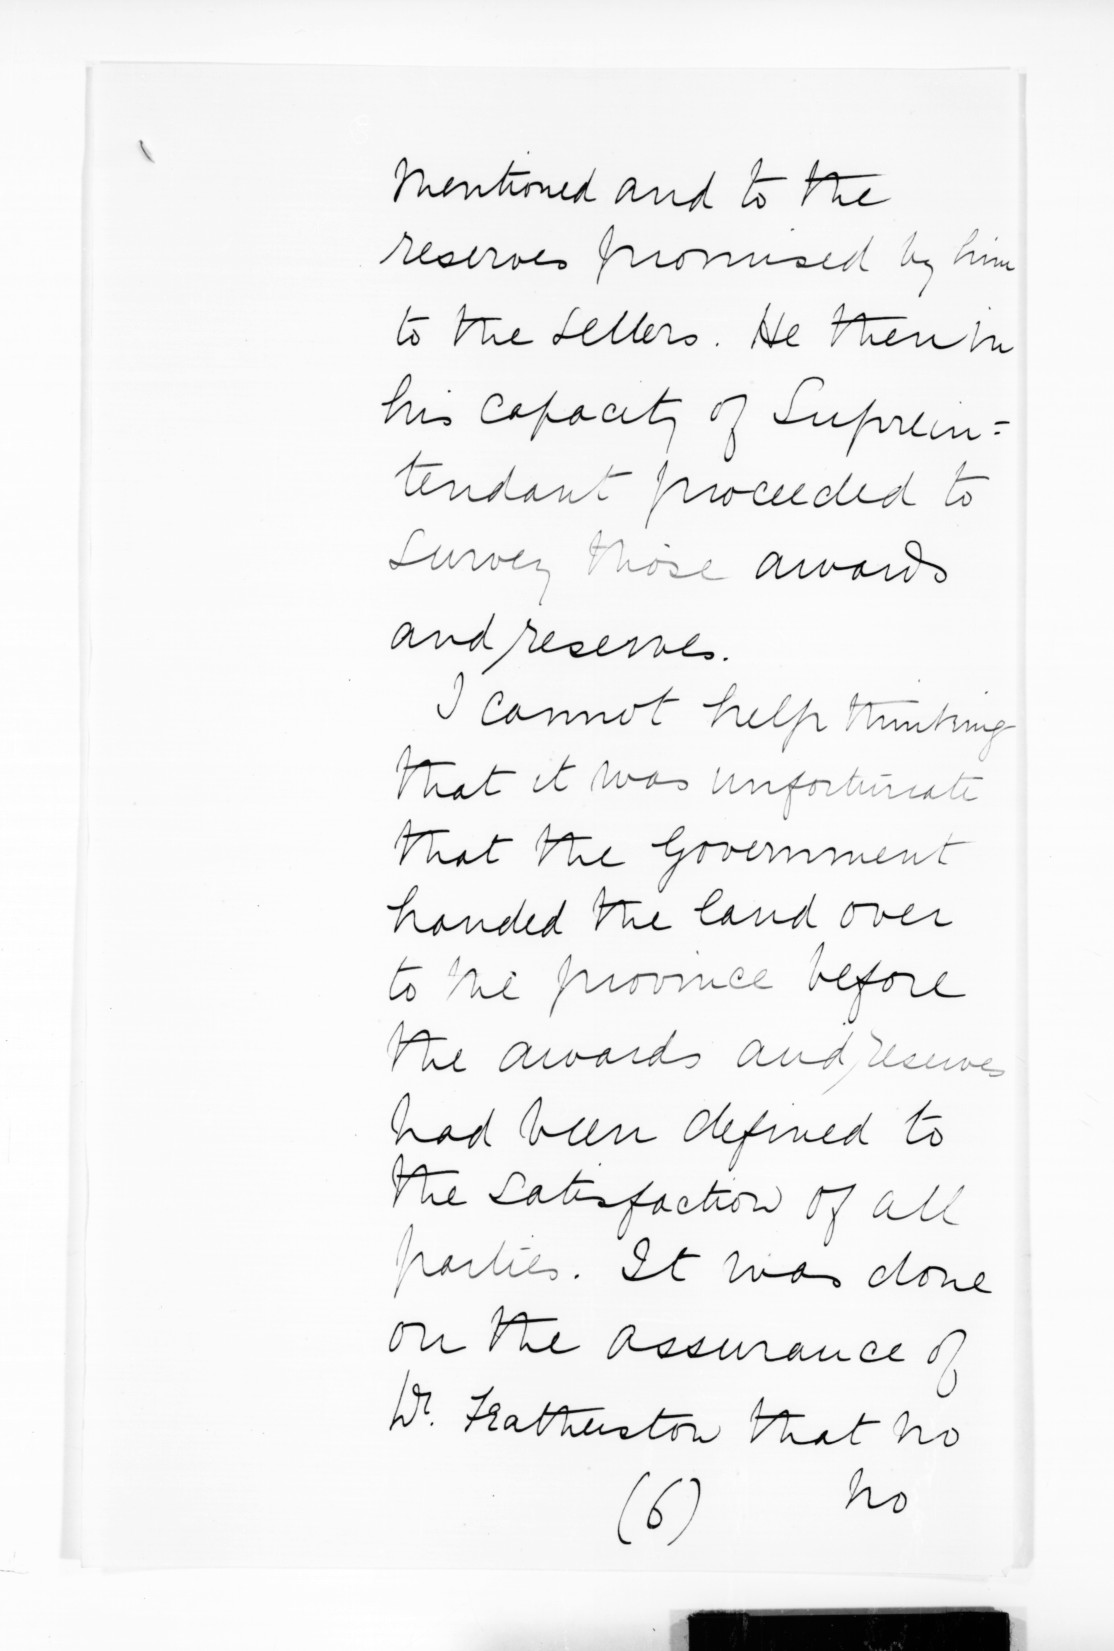 mentioned and to the
reserves promised by him
to the sellers. He then in
his capacity of Suprein=
tendant proceeded to
survey those awards
and reserves.
I cannot help thinking
that it was unfortunate
that the Government
handed the land over
to the province before
the awards and reserves
had been defined to
the satisfaction of all
parties. It was done
on the assurance of
Dr. Featherston that no
(6) no